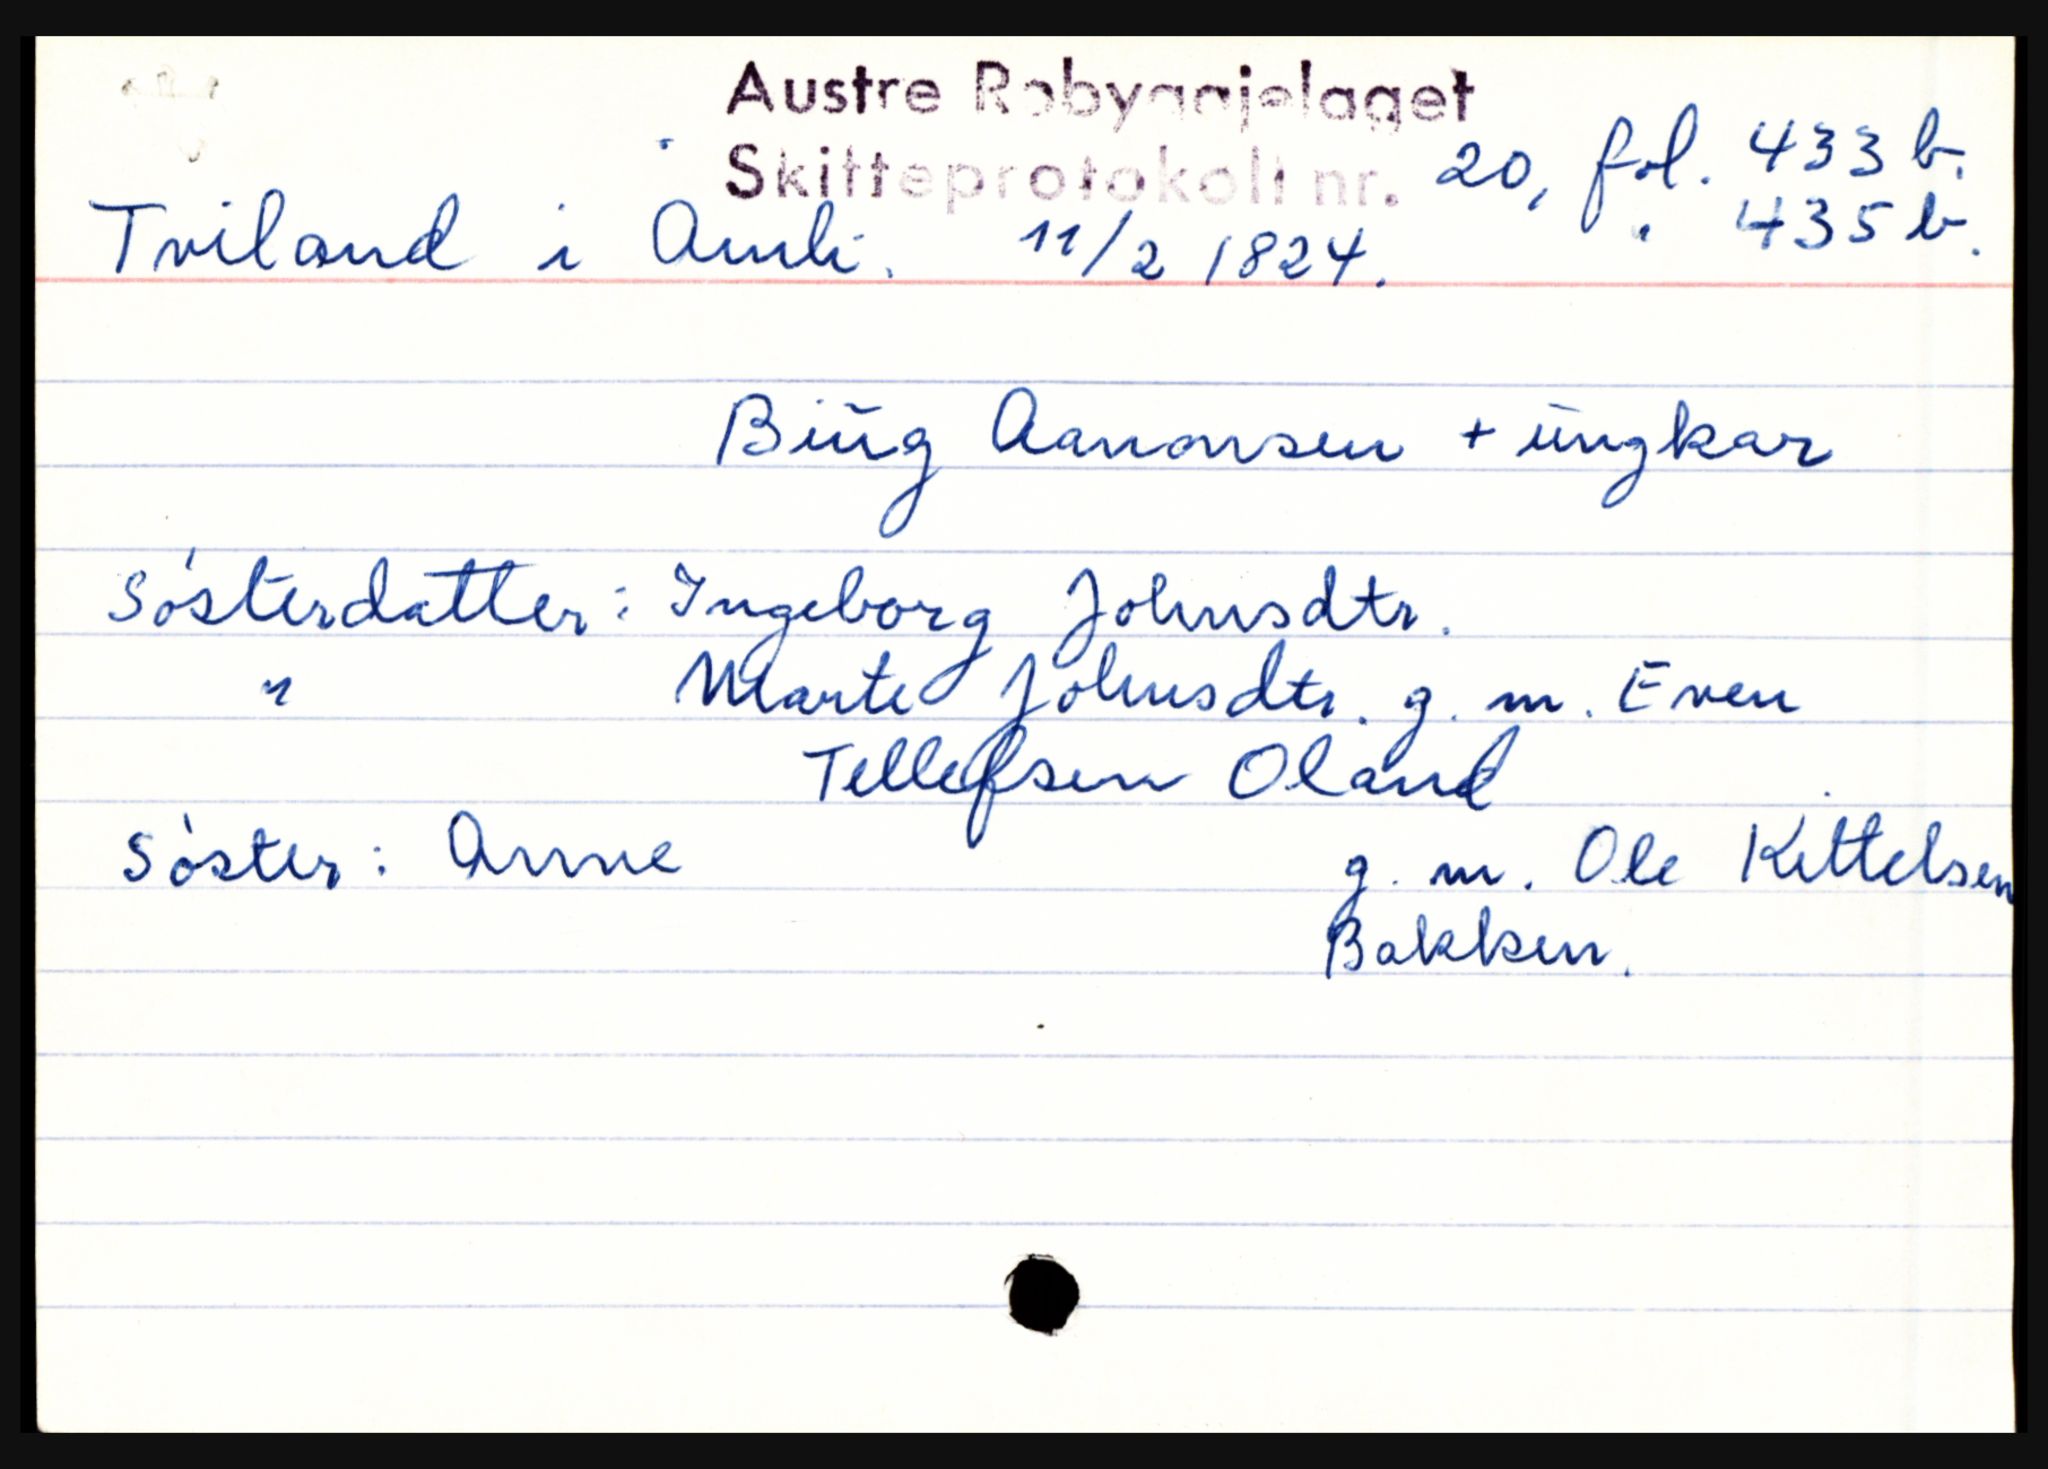 Austre Robyggjelaget
Skifteprotokoll nr. 20, fol. 433 b.
Tviland i Åmli. 11/2 1824. " 435 b.
Biug Aanonsen + ungkar
Søsterdatter: Ingeborg Johnsdtr.
" Marte Johnsdtr. g. m. Even
Tellefsen Oland
Søster: Anne g. m. Ole Kittelsen
Bakken.